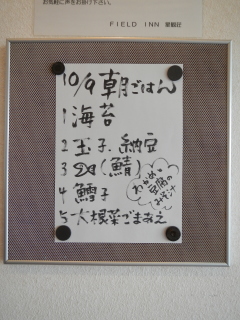 お気軽に声をお掛け下さい。
FIELD INN
10/9 朝ごはん
1 海苔
2 玉子、納豆
3 (鯖)
4 鱈子
5 大根菜ごまあえ
わかめと
豆腐の
みそ汁